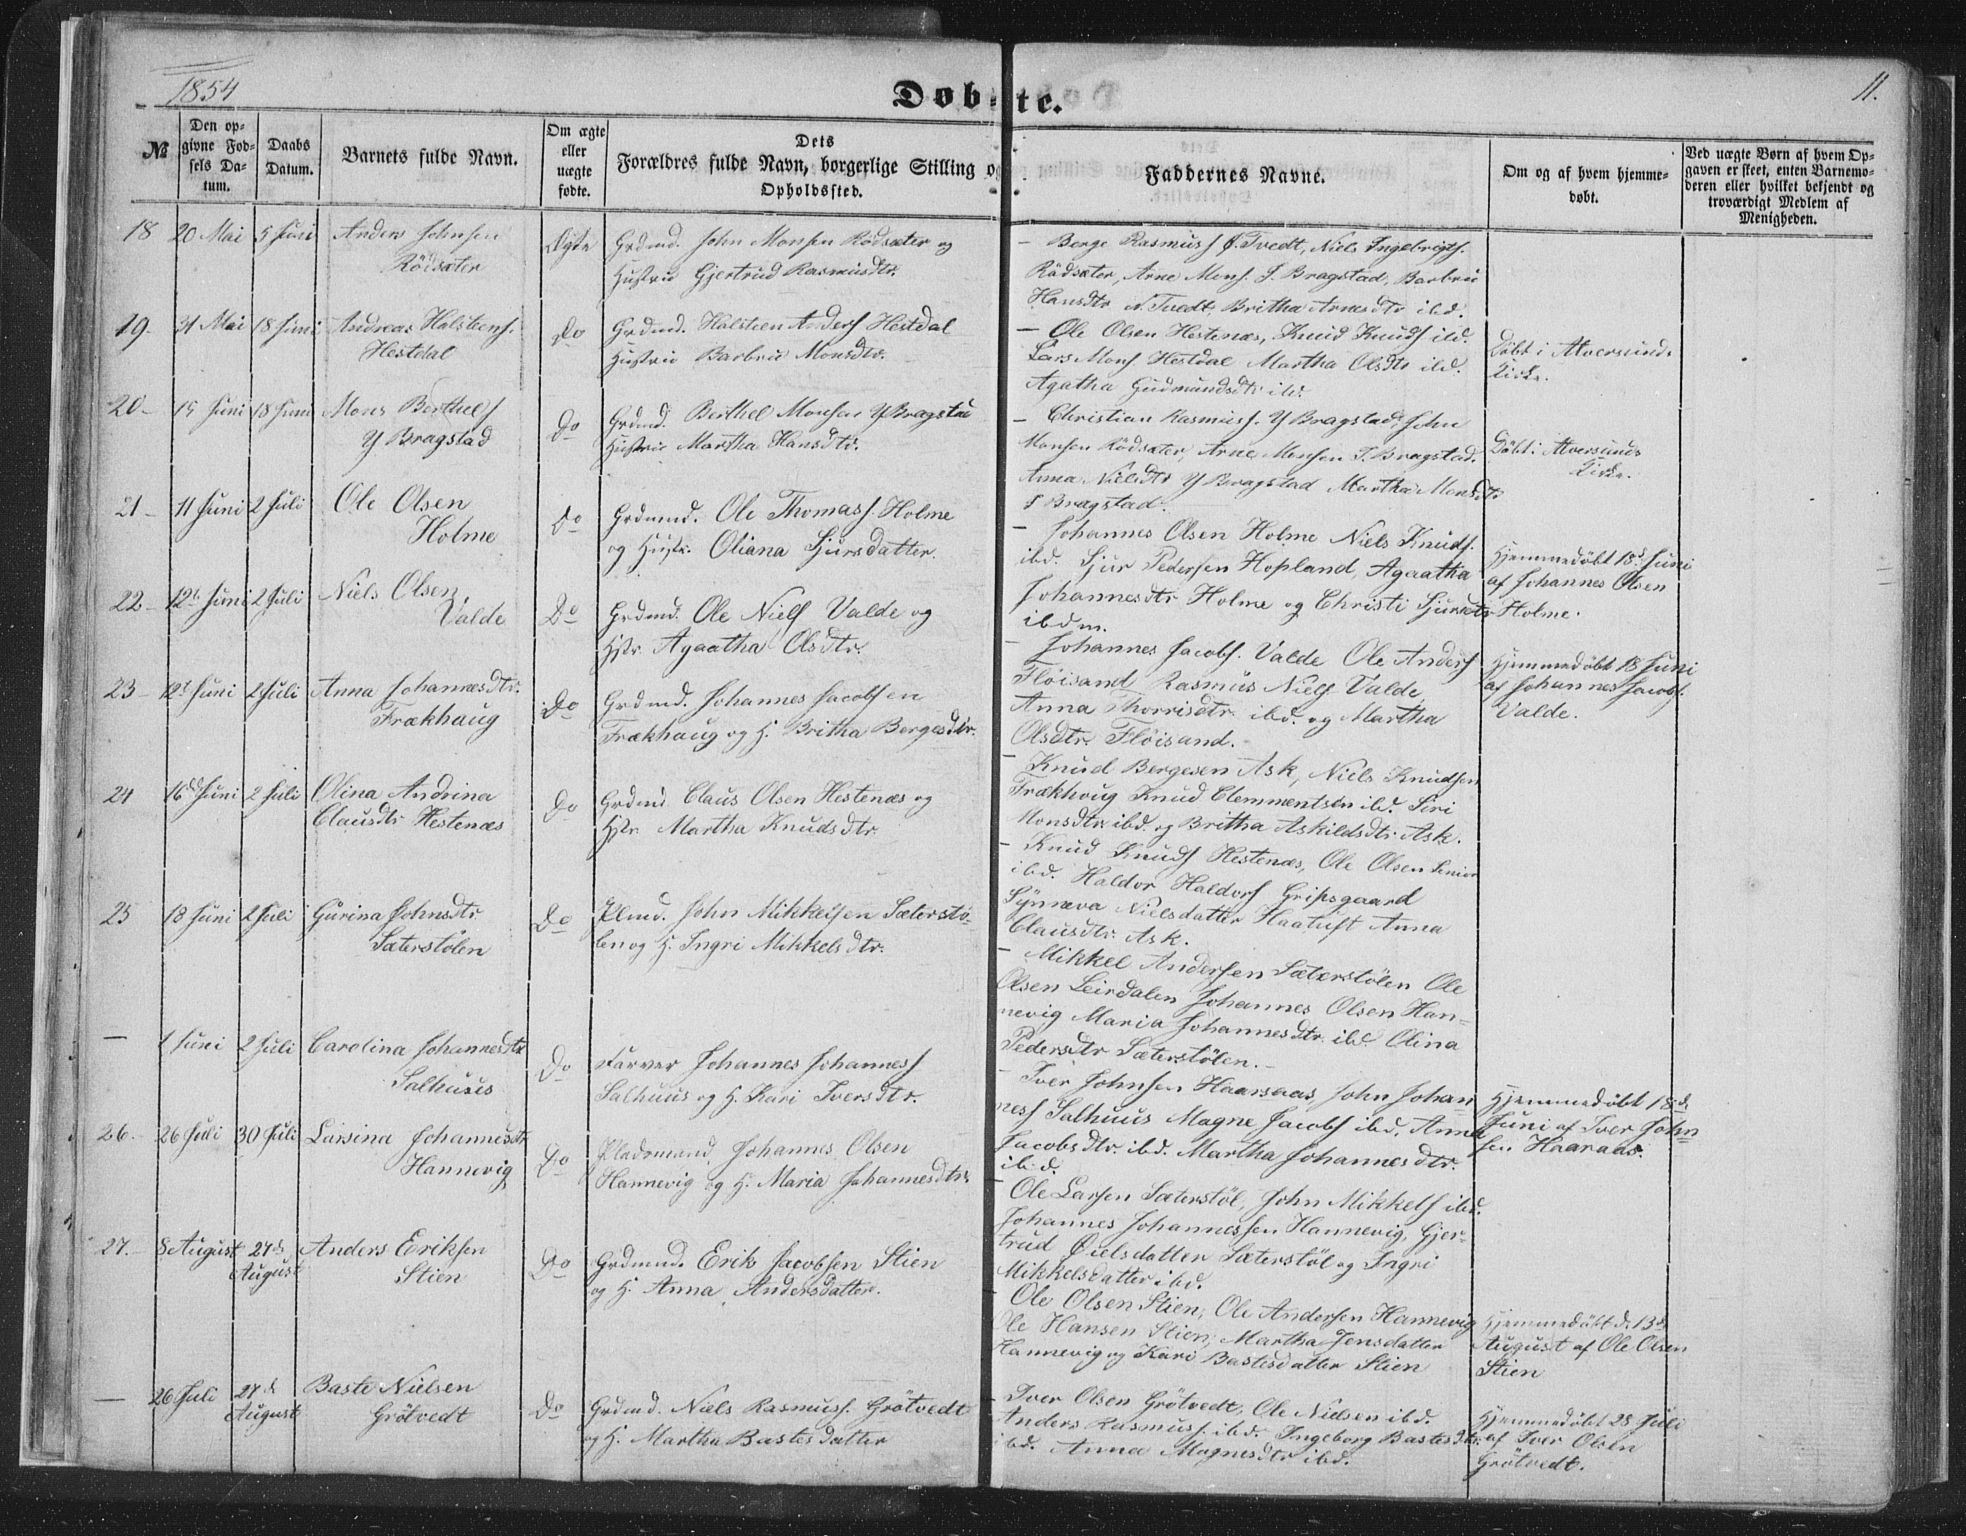 1854
Døbte.
11.
№
Den opgivne Fødsels Datum.
Daabs Datum.
Barnets fulde Navn.
Om ægte eller uægte fødte.
Dets Forældres fulde Navn, borgerlige Stilling og Opholdssted.
Faddernes Navne.
Om og af hvem hjemmedøbt.
Ved uægte Børn af hvem Opgaven er skeet, enten Barnemoderen eller hvilket bekjendt og troværdigt Medlem af Menigheden.
18 20 Mai 5 Juni Anders Johnsen
Rödsæter
Ægte
Grdmd. John Monsen Rödsæter og
Hustrue Gjertrud Rasmusdtr.
– Berge Rasmuss Ø. Tvedt, Niels Ingebrigts.
Rödsæter, Arne Mons. I. Bragstad, Barbrue
Hansdtr N. Tvedt, Britha Arnesdtr ibd.
19 31 Mai 18 Juni Andreas Halsteens.
Hestdal
Do
Grdmd. Halsteen Anders Hestdal
Hustrue Barbrue Monsdtr.
– Ole Olsen Hestenæs, Knud Knuds ibd.
Lars Mons Hestdal Martha Olsdtr ibd.
Agatha Gudmundsdtr ibd.
Döbt i Alversunds
Kirke.
20 – 15 Juni 18 Juni Mons Berthels
Y Bragstad
Do
Grdmd. Berthel Monsen Y Bragstad
Hustrue Martha Hansdtr.
– Christian Rasmuss. Y Bragstad, John
Monsen Rödsæter, Arne Monsen I. Bragstad.
Anna Nielsdtr Y Bragstad Martha Monsdtr
I Bragstad.
Döbt i Alversunds
Kirke.
21 – 11 Juni 2 Juli Ole Olsen
Holme
Do
Grdmnd. Ole Thomass. Holme
og Hustr. Oliana Sjursdatter.
– Johannes Olsen Holme Niels Knuds.
ibd. Sjur Pedersen Hopland, Agaatha
Johannesdtr Holme og Christi Sjursdtr
ibdm.
Hjemmedöbt 18d. Juni
af Johannes Olsen
Holme.
22 – 12t Juni 2 Juli Niels Olsen,
Valde
Do
Grdmd. Ole Niels Valde og
Hstr. Agaatha Olsdtr.
– Johannes Jacobs. Valde Ole Anders
Flöisand Rasmus Niels Valde
Anna Thorrisdtr ibd. og Martha
Olsdtr. Flöisand.
Hjemmedöbt 18 Juni
af Johannes Jacobs.
Valde.
23 – 12t Juni 2 Juli Anna Johannesdtr.
Frækhaug
Do
Grdmd. Johannes Jacobsen
Frækhaug og H. Britha Bergesdtr.
– Knud Bergesen Ask, Niels Knudsen
Frækhoug Knud Clemmentsen ibd. Siri
Monsdtr ibd. og Britha Askildsdtr. Ask.
24 16d Juni 2 Juli Olina Andrina
Clausdtr Hestenæs
Do
Grdmd Claus Olsen Hestenæs og
Hstr. Martha Knudsdtr.
– Knud Knuds Hestenæs, Ole Olsen Senior
ibd. Haldor Haldors Gripsgaard
Synneva Nielsdatter Haatuft Anna
Clausdtr. Ask.
25 18 Juni 2 Juli Gurina Johnsdtr
Sæterstölen
Do
Plmd. John Mikkelsen Sæterstö-
len og H. Ingri Mikkelsdtr.
– Mikkel Andersen Sæterstölen Ole
Olsen Leirdalen Johannes Olsen Han-
nevig Maria Johannesdtr. ibd. Olina
Pedersdtr Sæterstölen.
– 1 Juni 2 Juli Carolina Johannesdtr
Salhuus
Do
Farver Johannes Johanness
Salhuus og H. Kari Iversdtr.
– Iver Johnsen Haaraas, John Johan-
ness Salhuus Magne Jacobs ibd. Anna
Jacobsdtr. ibd. Martha Johannesdtr.
ibd.
Hjemmedöbt 18d.
Juni af Iver John-
sen Haaraas.
26. 26 Juli 30 Juli Larsina Johannesdtr
Hannevig
Do
Pladsmand Johannes Olsen
Hannevig og H. Maria Johannesdtr.
– Ole Larsen Sæterstöl, John Mikkels ibd.
Johannes Johannessen Hannevig, Gjer-
trud Nielsdatter Sæterstöl og Ingri
Mikkelsdatter ibd.
27. 8 August 27d August Anders Eriksen
Stien
Do
Grdmnd. Erik Jacobsen Stien
og H. Anna Andersdatter.
– Ole Olsen Stien, Ole Andersen Hannevig
Ole Hansen Stien, Martha Jensdatter
Hannevig og Kari Bastesdatter Stien
Hjemmedöbt d. 13d
August af Ole Olsen
Stien
– 26 Juli 27d August Baste Nielsen
Grötvedt
Do
Grdmd. Niels Rasmuss. Grötvedt
og H. Martha Bastesdatter
– Iver Olsen Grötvedt, Ole Nielsen ibd.
Anders Rasmuss. ibd. Ingeborg Bastesdtr.
ibd. Anna Magnesdtr ibd.
Hjemmedöbt 28 Juli
af Iver Olsen
Grötvedt.